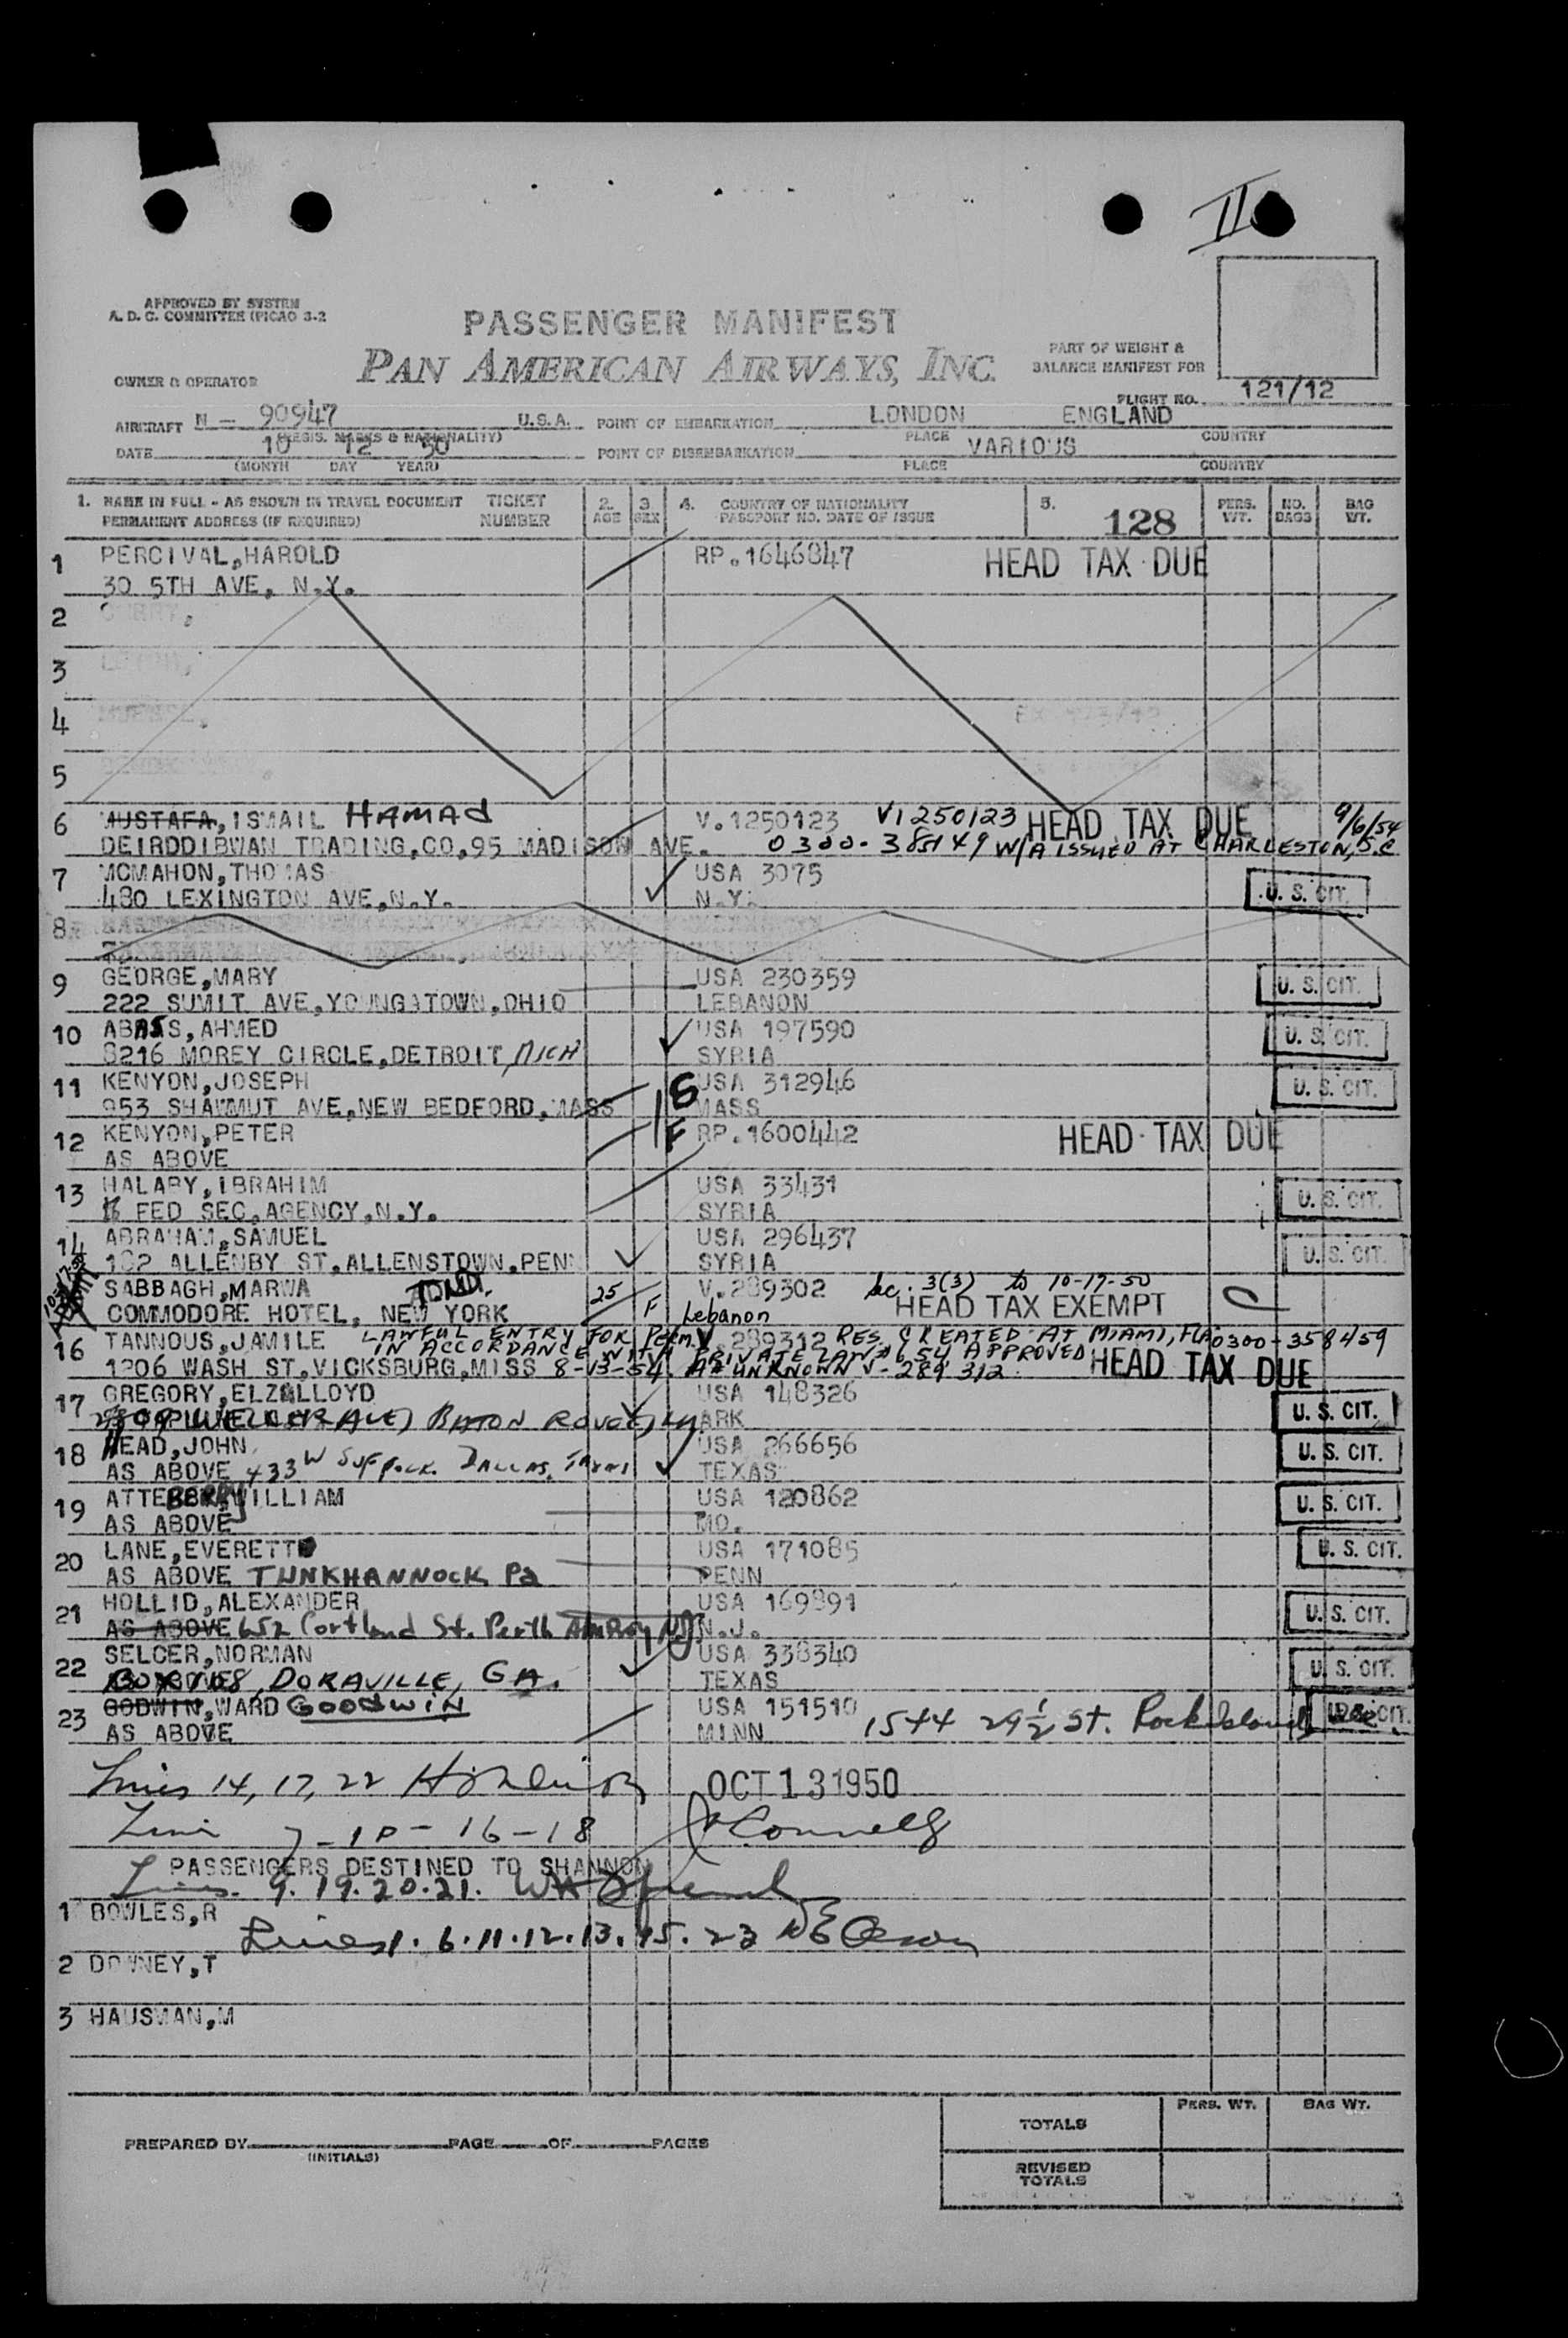 II
APPROVED BY SYSTEM
A. D. C. COMMITTEE (PICAO 3-2
PASSENGER MANIFEST
PAN AMERICAN AIRWAYS, INC.
PART OF WEIGHT &
BALANCE MANIFEST FOR
OWNER & OPERATOR
FLIGHT NO. 121/12
AIRCRAFT N - 90947 U.S.A. POINT OF EMBARKATION LONDON ENGLAND
(REGIS. MARKS & NATIONALITY) PLACE COUNTRY
DATE 10 12 50 POINT OF DISEMBARKATION VARIOUS
(MONTH DAY YEAR) PLACE COUNTRY
1. NAME IN FULL - AS SHOWN IN TRAVEL DOCUMENT TICKET 2. 3. 4. COUNTRY OF NATIONALITY 5. 128 PERS. NO. BAG
PERMANENT ADDRESS (IF REQUIRED) NUMBER AGE SEX PASSPORT NO. DATE OF ISSUE WT. BAGS WT.
1 PERCIVAL,HAROLD RP.1646847 HEAD TAX DUE
30 5TH AVE, N.Y.
2
3
4
5
6 MUSTAFA,ISMAIL HAMAd V.1250123 V1250123 HEAD TAX DUE 9/6/54
DEIRDDIBWAN TRADING,CO,95 MADISON AVE. 0300-385149 W/A ISSUED AT CHARLESTON, S.C
7 MCMAHON,THOMAS USA 3075
480 LEXINGTON AVE,N.Y. N.Y. U. S. CIT.
8
9 GEORGE,MARY USA 230359 U. S. CIT.
222 SUMIT AVE,YOUNGSTOWN,OHIO LEBANON
10 ABASS,AHMED USA 197590 U. S. CIT.
8216 MOREY CIRCLE,DETROIT,MICH SYRIA
11 KENYON,JOSEPH S USA 312946 U. S. CIT.
953 SHAWMUT AVE,NEW BEDFORD,MASS MASS
12 KENYON,PETER F RP.1600442 HEAD TAX DUE
AS ABOVE
13 HALABY,IBRAHIM USA 33431 U. S. CIT.
FED SEC,AGENCY,N.Y. SYRIA
14 ABRAHAM,SAMUEL USA 296437 U. S. CIT.
182 ALLENBY ST,ALLENSTOWN,PENN SYRIA
SABBAGH,MARWA 25 F V.289302 Sec. 3(3) to 10-17-50
COMMODORE HOTEL, NEW YORK Lebanon HEAD TAX EXEMPT
16 TANNOUS,JAMILE LAWFUL ENTRY FOR PERM. V.289312 RES. CREATED AT MIAMI, FLA 0300-358459
IN ACCORDANCE WITH PRIVATE LAW APPROVED
1206 WASH ST,VICKSBURG,MISS 8-13-54. V-289312 HEAD TAX DUE
17 GREGORY,ELZALLOYD USA 148326 U. S. CIT.
BATON ROUGE, LA ARK
18 HEAD,JOHN USA 266656 U. S. CIT.
AS ABOVE 433 W SUFFOLK DALLAS, TEXAS TEXAS
19 ATTEBERRY WILLIAM USA 120862 U. S. CIT.
AS ABOVE MO.
20 LANE,EVERETT USA 171085 U. S. CIT.
AS ABOVE TUNKHANNOCK Pa PENN
21 HOLLID,ALEXANDER USA 169891 U. S. CIT.
AS ABOVE 652 Cortland St. Perth Amboy NJ N.J.
22 SELCER,NORMAN USA 338340 U. S. CIT.
BOX 108, DORAVILLE, GA. TEXAS
23 GODWIN,WARD GOODWIN USA 151510 U. S. CIT.
AS ABOVE MINN 1544 29 1/2 St. Rock Island
Lines 14, 17, 22 OCT 13 1950
Line 7-10-16-18
PASSENGERS DESTINED TO SHANNON
Lines. 9. 19. 20. 21.
1 BOWLES,R
Lines 1. 6. 11. 12. 13. 15. 23
2 DOWNEY,T
3 HAUSMAN,M
PERS. WT. BAG WT.
TOTALS
PREPARED BY PAGE OF PAGES
(INITIALS)
REVISED
TOTALS